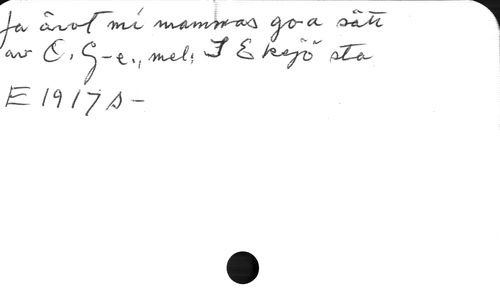 Ja ärvt mi mammas go-a sätt
av E. G-e., mel: I Eksjö sta
E 1917 A -